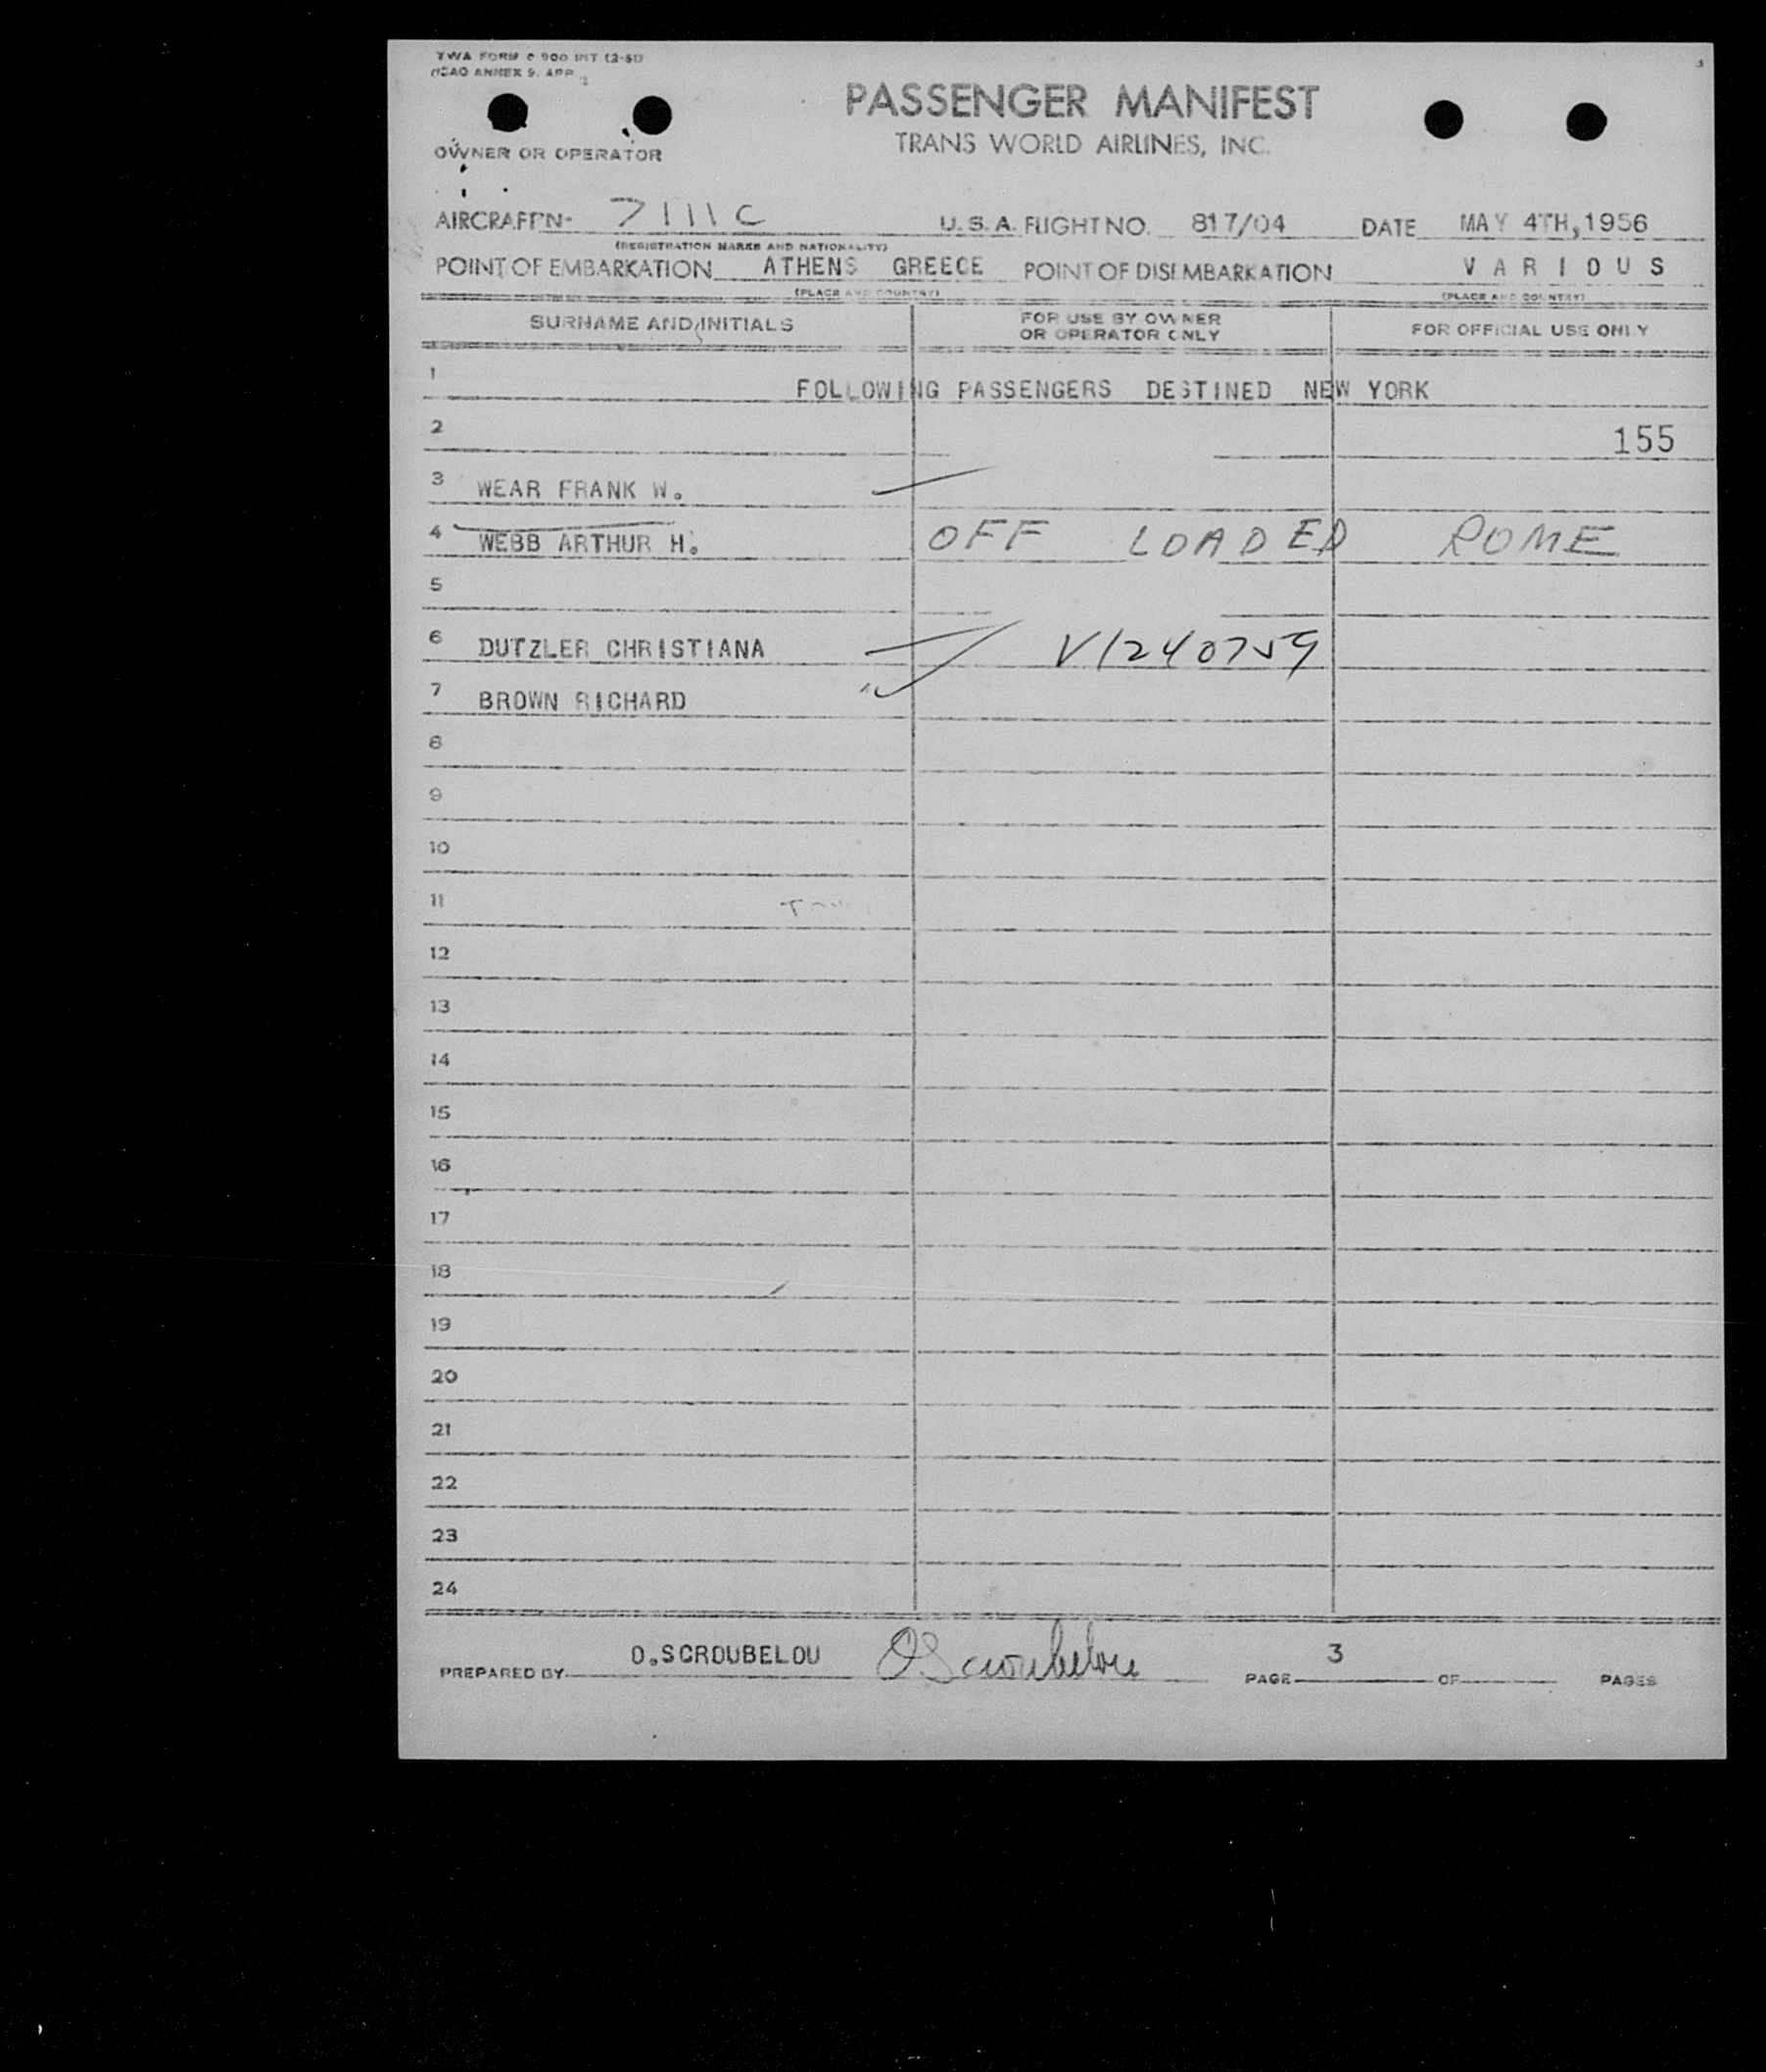 TWA FORM C 900 INT (2-51)
ICAO ANNEX 9. APP
PASSENGER MANIFEST
TRANS WORLD AIRLINES, INC.
OWNER OR OPERATOR
AIRCRAFT N- 7111C U.S.A. FLIGHT NO. 817/04 DATE MAY 4TH,1956
(REGISTRATION MARKS AND NATIONALITY)
POINT OF EMBARKATION ATHENS GREECE POINT OF DISEMBARKATION VARIOUS
(PLACE AND COUNTRY) (PLACE AND COUNTRY)
SURNAME AND INITIALS FOR USE BY OWNER OR OPERATOR ONLY FOR OFFICIAL USE ONLY
1 FOLLOWING PASSENGERS DESTINED NEW YORK
2 155
3 WEAR FRANK W.
4 WEBB ARTHUR H. OFF LOADED ROME
5
6 DUTZLER CHRISTIANA V1240759
7 BROWN RICHARD
8
9
10
11
12
13
14
15
16
17
18
19
20
21
22
23
24
PREPARED BY O.SCROUBELOU OScroubelou PAGE 3 OF PAGES